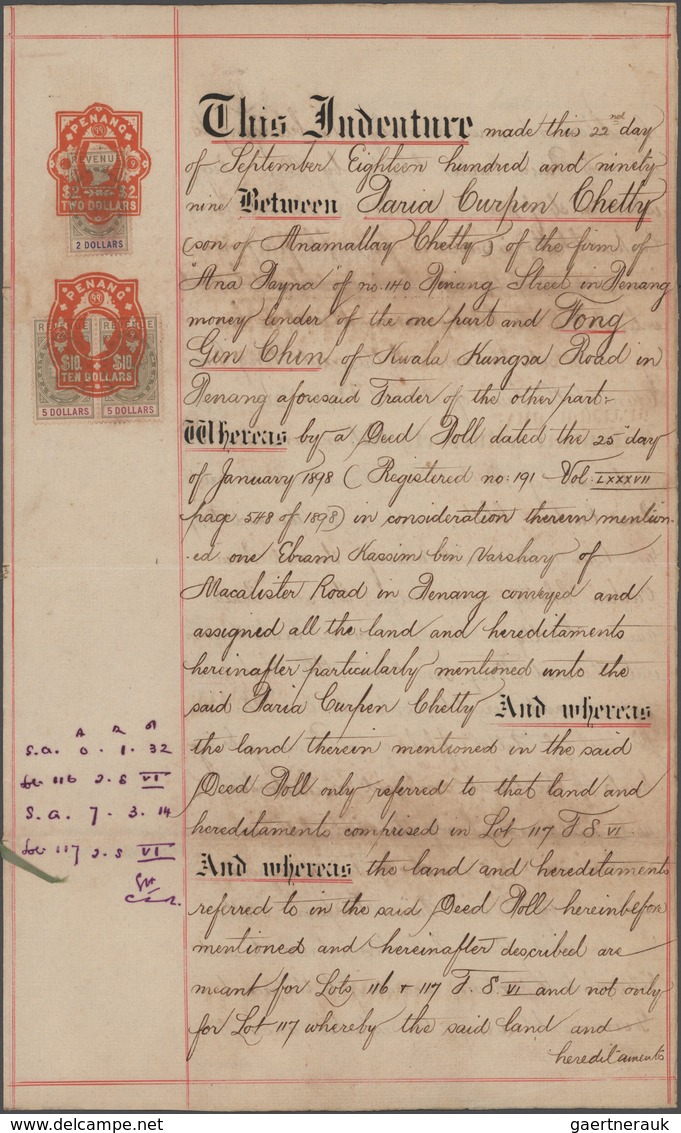 PENANG
99
REVENUE
$2 $2
TWO DOLLARS
2 DOLLARS
PENANG
99
REVENUE REVENUE
$10. $10.
TEN DOLLARS
5 DOLLARS 5 DOLLARS
This Indenture made this 22nd day
of September Eighteen hundred and ninety
nine Between Paria Curpen Chetty
(son of Anamallay Chetty) of the firm of
"Ana Payna" of no. 140 Penang Street in Penang
money lender of the one part and Fong
Gin Chin of Kwala Kangsa Road in
Penang aforesaid Trader of the other part:-
Whereas by a Deed Poll dated the 25th day
of January 1898 (Registered no: 191 Vol: LXXXVII
page 548 of 1898) in consideration therein mention-
ed one Ebram Kassim bin Varshay of
Macalister Road in Penang conveyed and
assigned all the land and hereditaments
hereinafter particularly mentioned unto the
said Paria Curpen Chetty And whereas
the land therein mentioned in the said
Deed Poll only referred to that land and
hereditaments comprised in Lot 117 T. S. VI.
And whereas the land and hereditaments
referred to in the said Deed Poll hereinbefore
mentioned and hereinafter described are
meant for Lots 116 + 117 T. S. VI and not only
for Lot 117 whereby the said land and
hereditaments
A R P
S.a. 0 . 1 . 32
Lot 116 T. S VI
S.a. 7 . 3 . 14
Lot 117 T. S VI
Delcampe.net
gaertnerauk